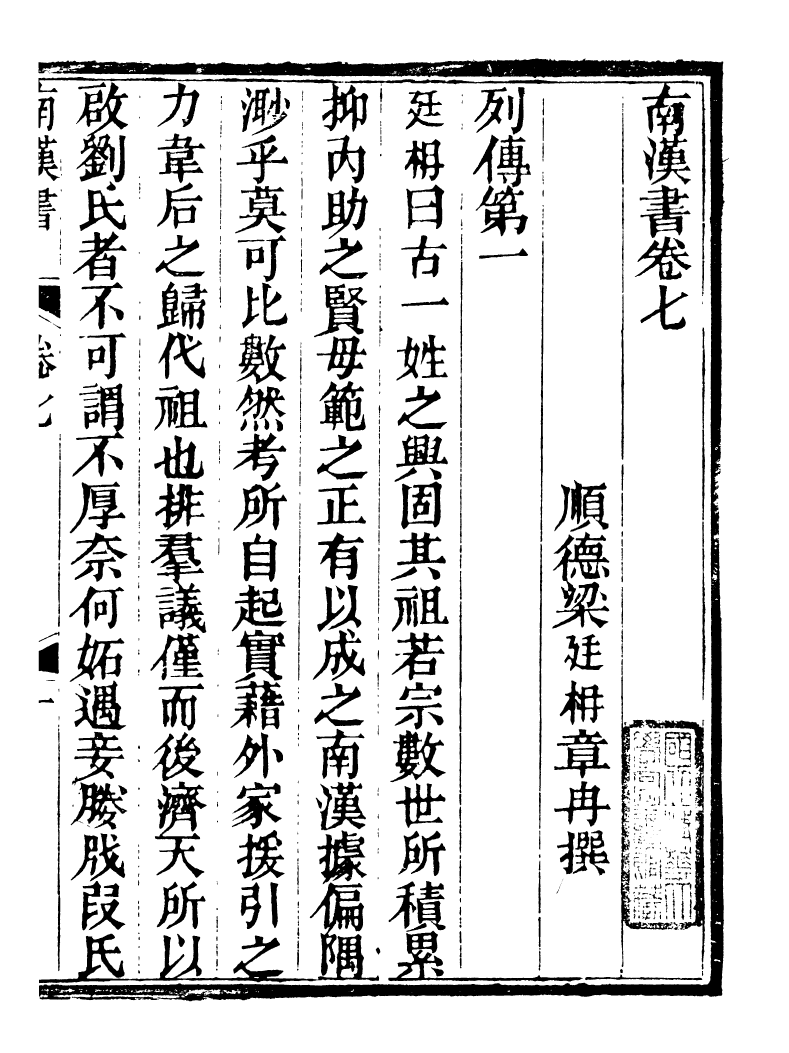 南漢書卷七
順德梁廷枏章冉撰
列傳第一
廷枏曰古一姓之興固其祖若宗數世所積累
抑內助之賢毋範之正有以成之南漢據偏隅
渺乎莫可比數然考所自起實藉外家援引之
力韋后之歸代祖也排羣議僅而後濟天所以
啟劉氏者不可謂不厚奈何妬遇妾媵戕段氏
南漢書 卷七 一